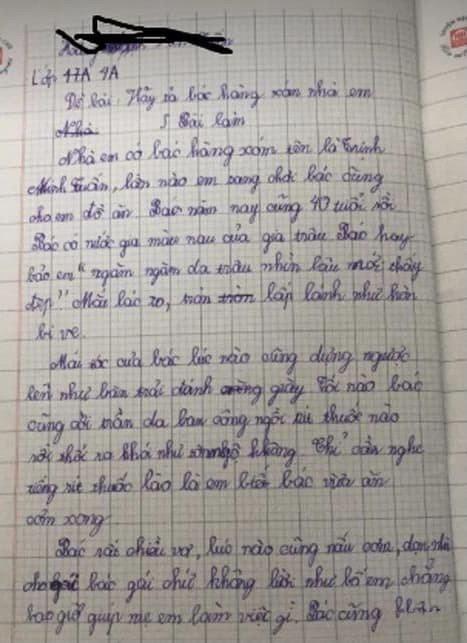 Lớp 4A 4A
Đề bài: Hãy tả bác hàng xóm nhà em
Nhà
Bài làm
Nhà em có bác hàng xóm tên là Trịnh
Minh Tuấn, lần nào em sang chơi bác cũng
cho em đồ ăn. Bác năm nay cũng 40 tuổi rồi
Bác có nước gia màu nau của gia trâu. Bác hay
bảo em "ngăm ngăm da trâu nhìn lâu mới thấy
đẹp" Mắt bác to, trán tròn lấp lánh như hòn
bi ve.
Mái tóc của bác lúc nào cũng dựng ngược
lên như bàn trải đánh giầy Tối nào bác
cũng cởi trần da ban công ngồi rít thuốc nào
rồi thổi ra khói như không. Chỉ cần nghe
tiếng rít thuốc lào là em biết bác vừa ăn
cơm xong.
Bác rất chiều vợ, lúc nào cũng nấu cơm, dọn nhà
cho bác gái chứ không lười như bố em chẳng
bao giờ giúp mẹ em làm việc gì. Bác cũng